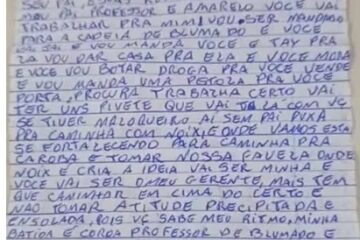 MEU PAI PROFESSOR E AMARELO VOCE VAI
TRABALHAR PRA MIM VOU SER MANDADO
PARA A CADEIA DE BLUMADO E VOCE
VAI E VOU MANDA VOCE E TAY PRA
LA VOU DAR CASA PRA ELA E VOCE MORA
E VOCE VOU BOTAR DROGA PRA VOCE VENDE
E VOU MANDA UMA PISTOLA PRA VOCE
PORTA, PROCURA TRABALHA CERTO VAI
TER UNS PIVETE QUE VAI TA LA COM VC
SE TIVER MALOQUEIRO AI SEM PAI PUXA
PRA CAMINHA COM NOIX LE ONDE VAMOS ESTA
SE FORTALECENDO PARA CAMINHA PRA
CAROBA E TOMAR NOSSA FAVELA ONDE
NOIX E CRIA A IDEIA VAI SER MINHA E
VOCE VAI SER O MEU GERENTE, MAIS TEM
QUE CAMINHAR EM CIMA DO CERTO E
NÃO TOMAR ATITUDE PRECIPITADA E
ENSOLADA, POIS VC SABE MEU RITMO, MINHA
BATIDA E COROA PROFESSOR DE BLUMADO E